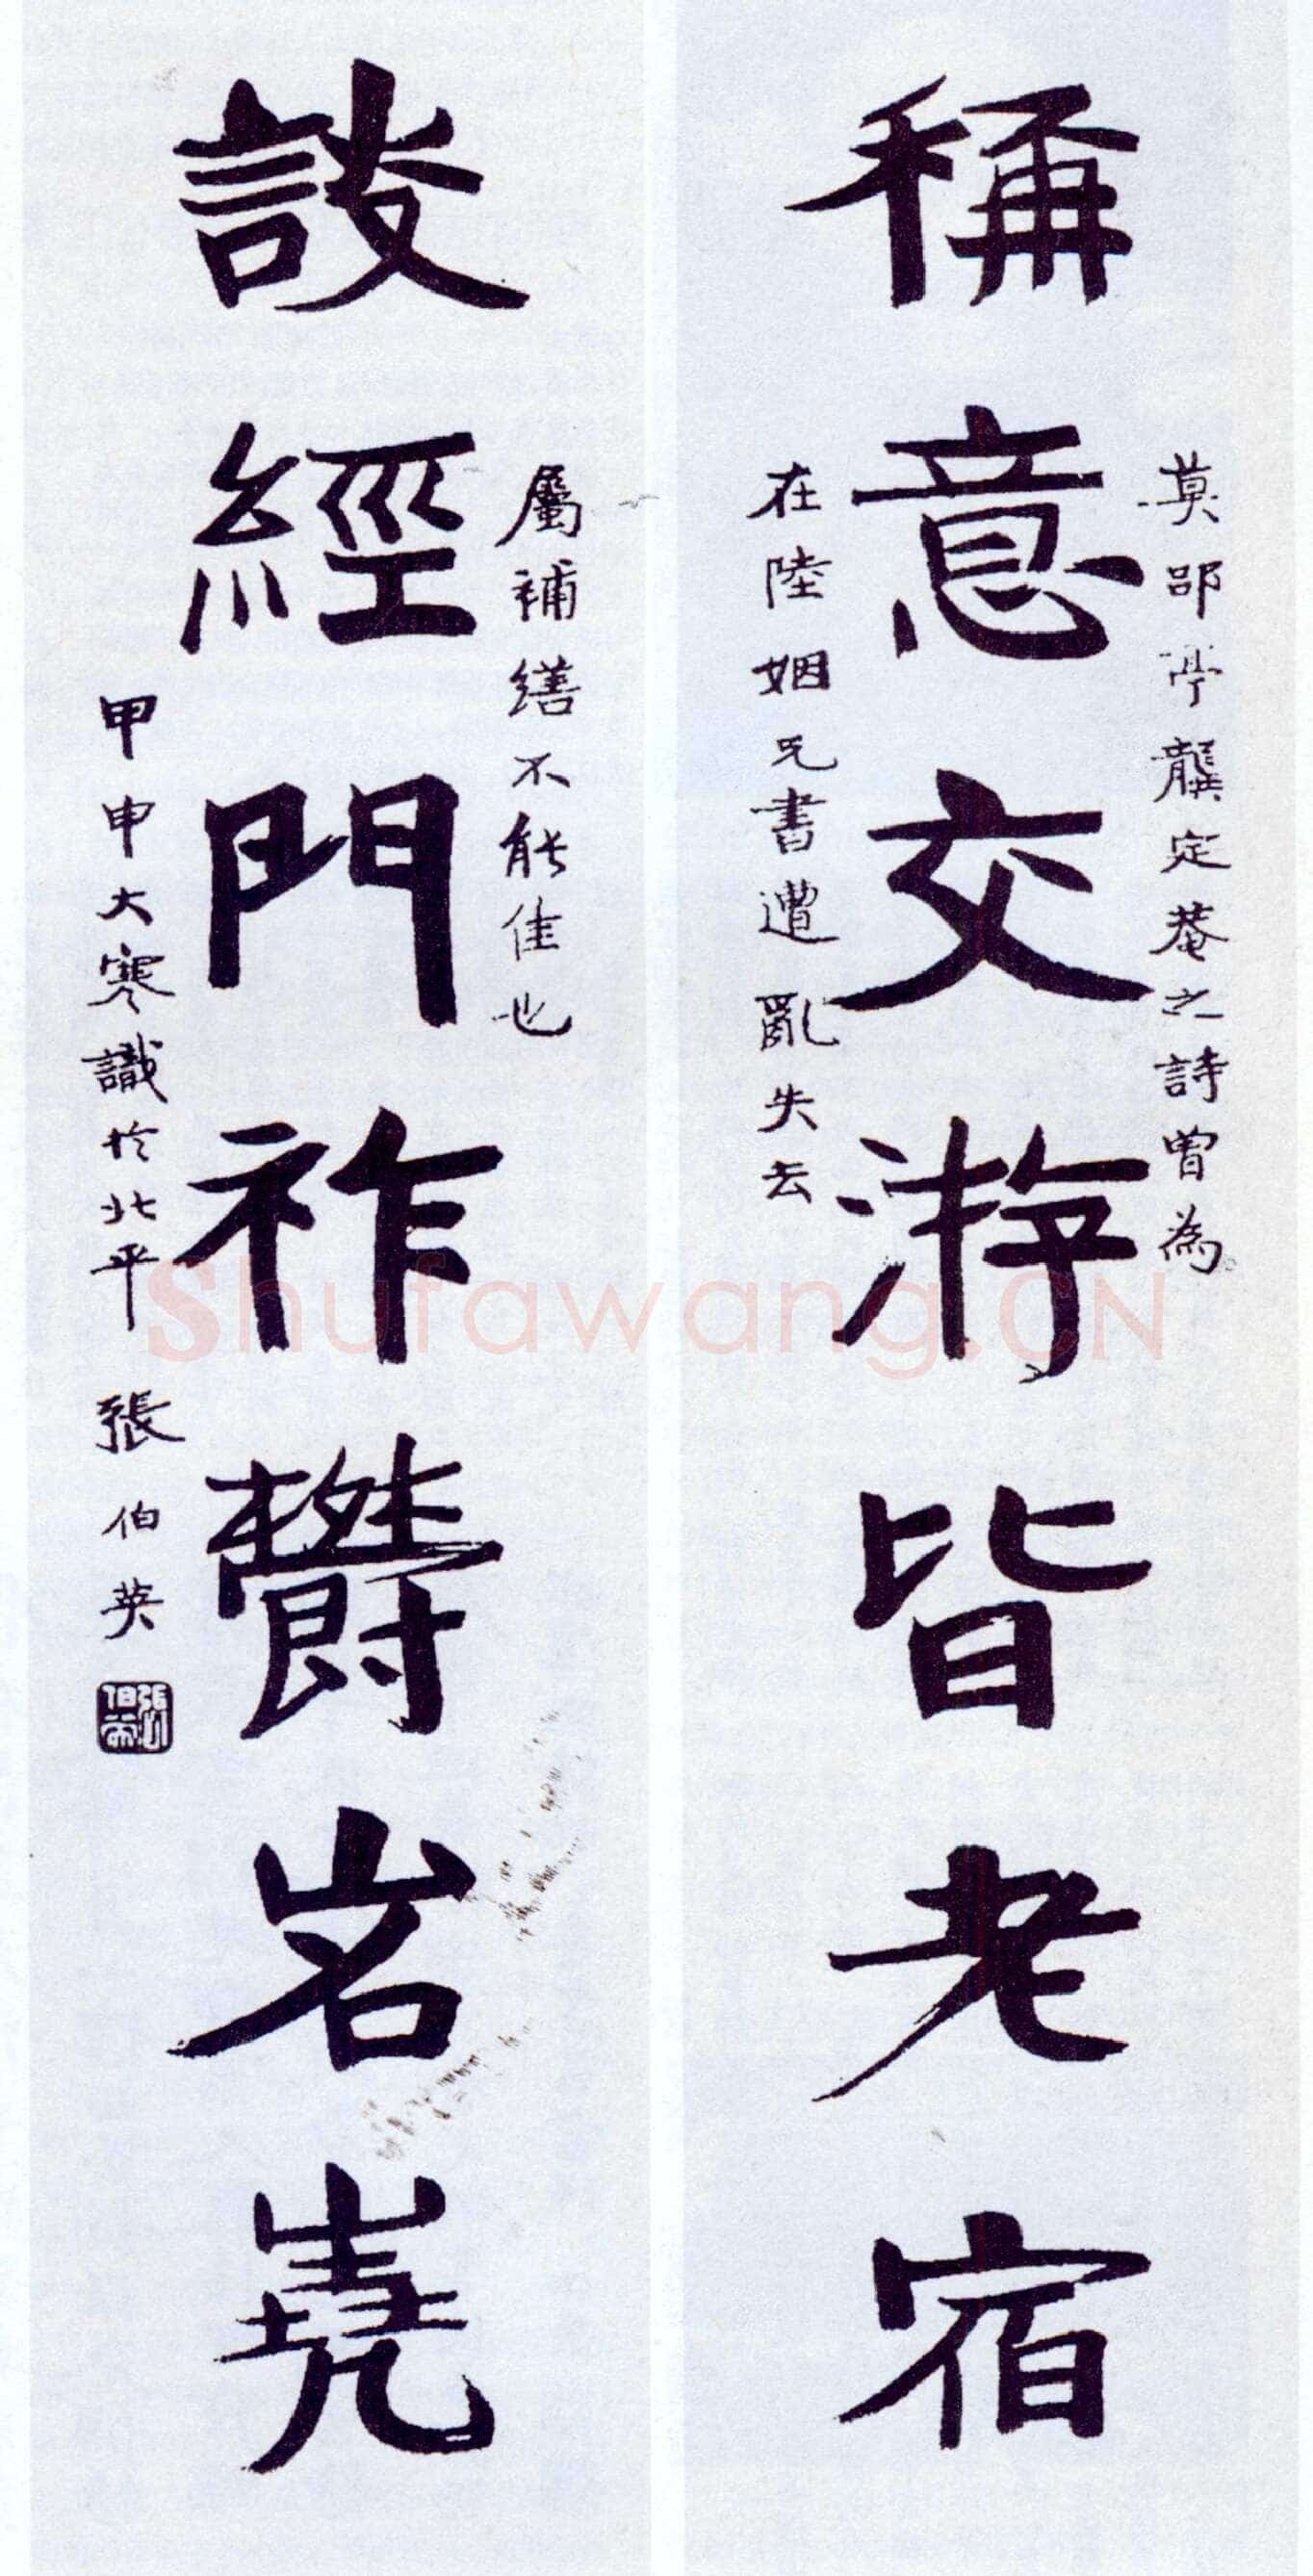 稱意交游皆老宿
莫郘亭龔定菴之詩曾為
在陸姻兄書遭亂失去
談經門祚欝岧嶤
屬補繕不能佳也
甲申大寒識於北平 張伯英
Shufawang.CN